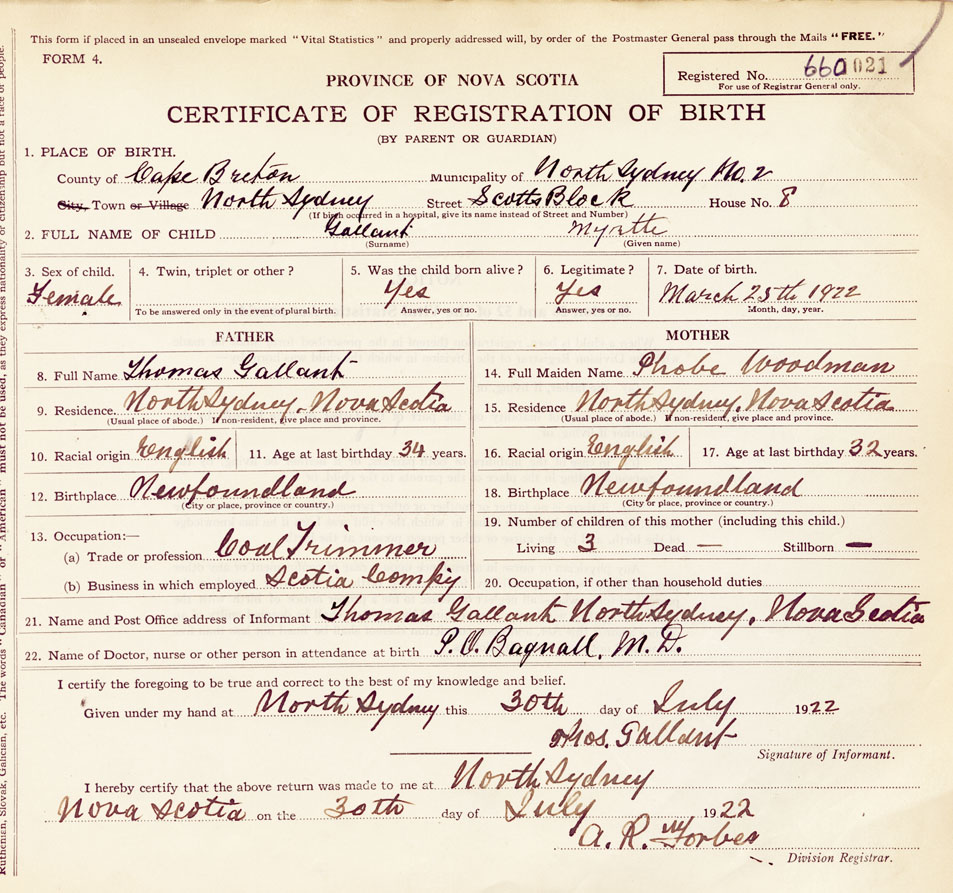 This form if placed in an unsealed envelope marked "Vital Statistics" and properly addressed will, by order of the Postmaster General pass through the Mails "FREE."
FORM 4.
Registered No. 660021
For use of Registrar General only.
PROVINCE OF NOVA SCOTIA
CERTIFICATE OF REGISTRATION OF BIRTH
(BY PARENT OR GUARDIAN)
1. PLACE OF BIRTH.
County of Cape Breton Municipality of North Sydney No. 2
City, Town or Village North Sydney Street Scotts Block House No. 8
(If birth occurred in a hospital, give its name instead of Street and Number)
2. FULL NAME OF CHILD Gallant Myrtle
(Surname) (Given name)
3. Sex of child. 4. Twin, triplet or other? 5. Was the child born alive? 6. Legitimate? 7. Date of birth.
Female Yes Yes March 25th 1922
To be answered only in the event of plural birth. Answer, yes or no. Answer, yes or no. Month, day, year.
FATHER
8. Full Name Thomas Gallant
9. Residence North Sydney, Nova Scotia
(Usual place of abode.) If non-resident, give place and province.
10. Racial origin English 11. Age at last birthday 34 years.
12. Birthplace Newfoundland
(City or place, province or country.)
13. Occupation:—
(a) Trade or profession Coal Trimmer
(b) Business in which employed Scotia Compy
MOTHER
14. Full Maiden Name Phobe Woodman
15. Residence North Sydney, Nova Scotia
(Usual place of abode.) If non-resident, give place and province.
16. Racial origin English 17. Age at last birthday 32 years.
18. Birthplace Newfoundland
(City or place, province or country.)
19. Number of children of this mother (including this child.)
Living 3 Dead — Stillborn —
20. Occupation, if other than household duties
21. Name and Post Office address of Informant Thomas Gallant North Sydney, Nova Scotia
22. Name of Doctor, nurse or other person in attendance at birth P. O. Bagnall, M.D.
I certify the foregoing to be true and correct to the best of my knowledge and belief.
Given under my hand at North Sydney this 30th day of July 1922
Thos. Gallant
Signature of Informant.
I hereby certify that the above return was made to me at North Sydney
Nova Scotia on the 30th day of July 1922
A. R. Forbes
Division Registrar.
Ruthenian, Slovak, Galician, etc. The words "Canadian" or "American" must not be used, as they express nationality or citizenship but not a race of people.